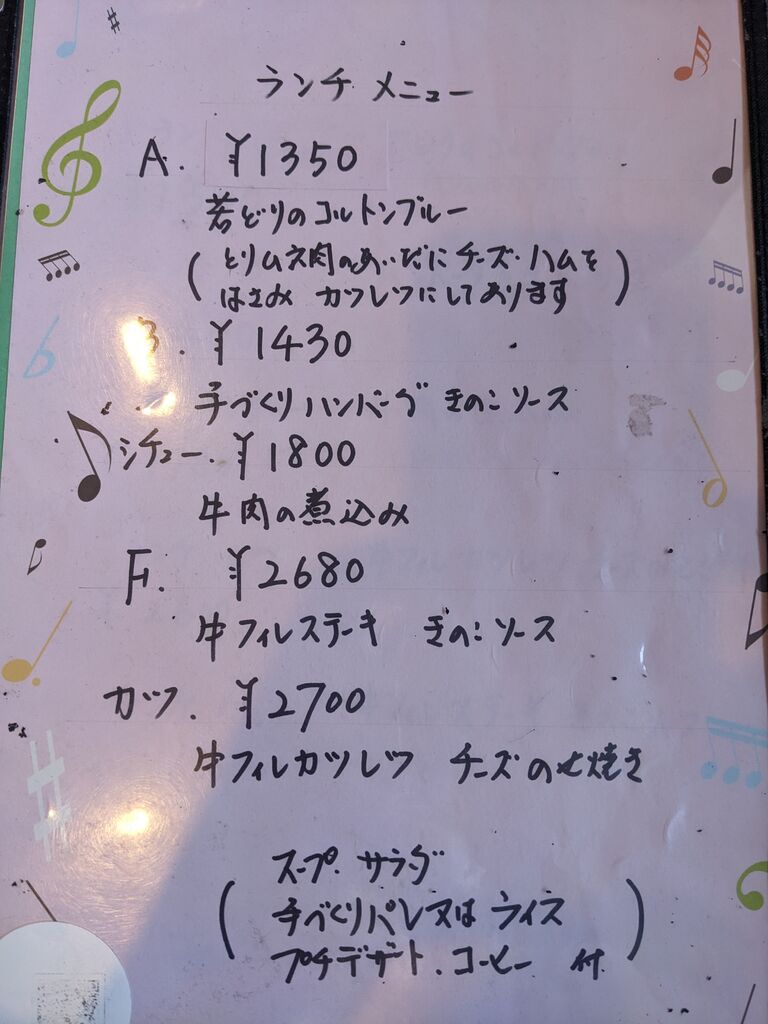 ランチ メニュー
A. ¥1350
若どりのコルトンブルー
(とりムネ肉のあいだにチーズ・ハムを
はさみ カツレツにしてあります)
B. ¥1430
手づくりハンバーグ きのこソース
シチュー. ¥1800
牛肉の煮込み
F. ¥2680
牛フィレステーキ きのこソース
カツ. ¥2700
牛フィレカツレツ チーズのせ焼き
(スープ. サラダ
手づくりパン又はライス
プチデザート. コーヒー 付)